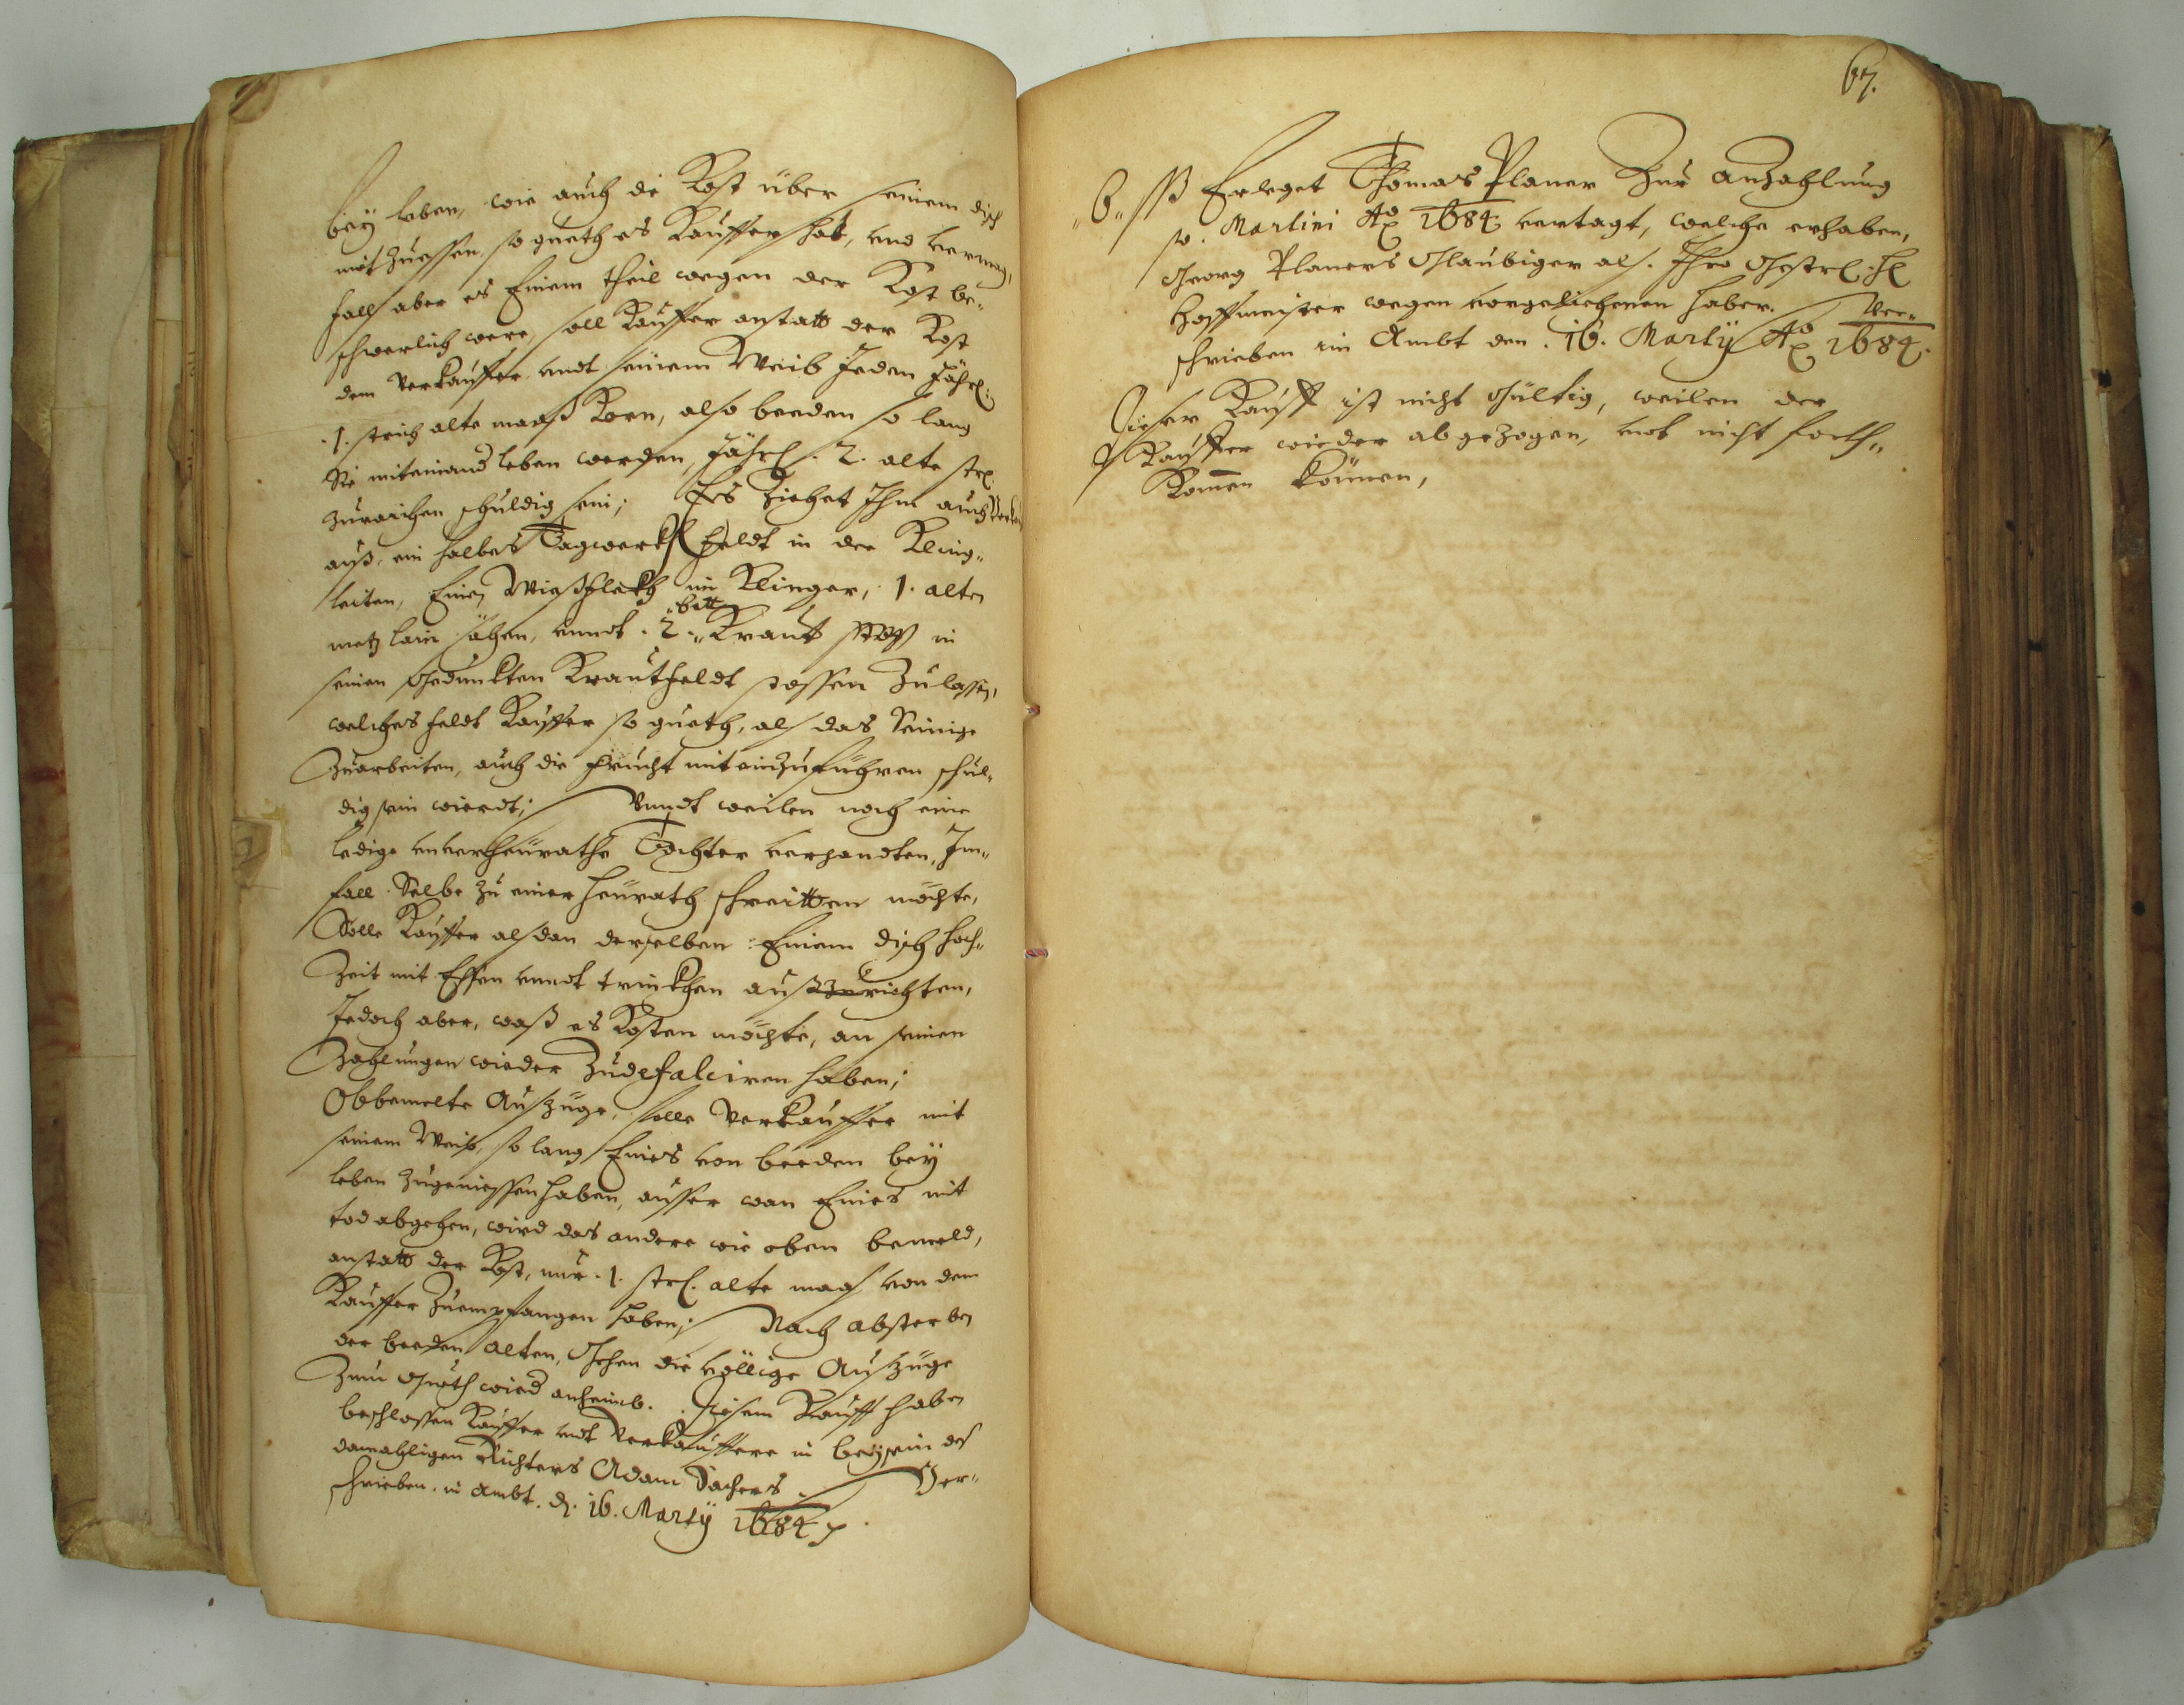 bey leben, wie auch die Kost über seinem disch
mit Zuessen, so gueth es Kauffer hat, und vermag,
fall aber es Einem theil wegen der Kost be„
schwerlich were, soll Kauffer anstatt der Kost
dem Verkauffer undt seinem Weib Jeden Jährl:
.1. strich alte maaß Korn, also beeden so lang
Sie miteinand leben werden, Jährl. 2. alte strl.
zuraichen schuldig sein; Es Ziehet Ihm auch
auß, ein halbes Tagwerkh Feldt in der Kling„
leiten, Einen Wießflekh im Klinger, 1. alten
metz lein sähen, unndt .2. „bett„ Kraut in
seinen Kräutfeldt sossen Zulassen,
welches feldt Kauffer so gueth, als das Seinige
Zuarbeiten, auch die Frucht mit einzuführen schul„
dig sein wierdt; Unndt weilen noch eine
ledige unverheurathe Tochter verhandten, Im„
fall Selbe zu einer heurath schreitten möchte,
Solle Kauffer alsdan derselben Einem disch hoch„
Zeit mit Essen unndt trinkhen außrichten,
Jedoch aber, waß es Kosten möchte, an seinen
Zahlungen wieder Zudefalciren haben;
Obbemelte Außzüge, solle Verkauffer mit
seinem Weib, so lang Eines von beeden bey
leben Zugeniessen haben, ausser wan Eines mit
tod abgehen, wird das andere wie oben bemeld,
anstatt der Kost, nur .1. strl. alte maas von dem
Kauffer Zuempfangen haben; Nach absterben
der beeden alten, Gehen die völlige Außzüge
Zum Gueth wied anheimb. Diesem Kauff haben
beschlossen Kauffer undt Verkauffere in beysein des
damahligen Richters Adam Sachers. Ver„
schrieben in Ambt. d. 16. Marty 1684
67.
„6„ ßß Erleget Thomas Planer Zur anzahlung
so. Martini Ao 1684 vertagt, welche erhaben,
Georg Planers Glaubiger als. Ihro Gestrl. H.
Hoffmeister wegen vorgeliehenen haber. Ver„
schrieben im Ambt den 16. Marty Ao 1684.
Dieser Kauff ist nicht Gültig, weilen der
Kauffer wieder abgezogen, undt nicht forth„
Komen können,